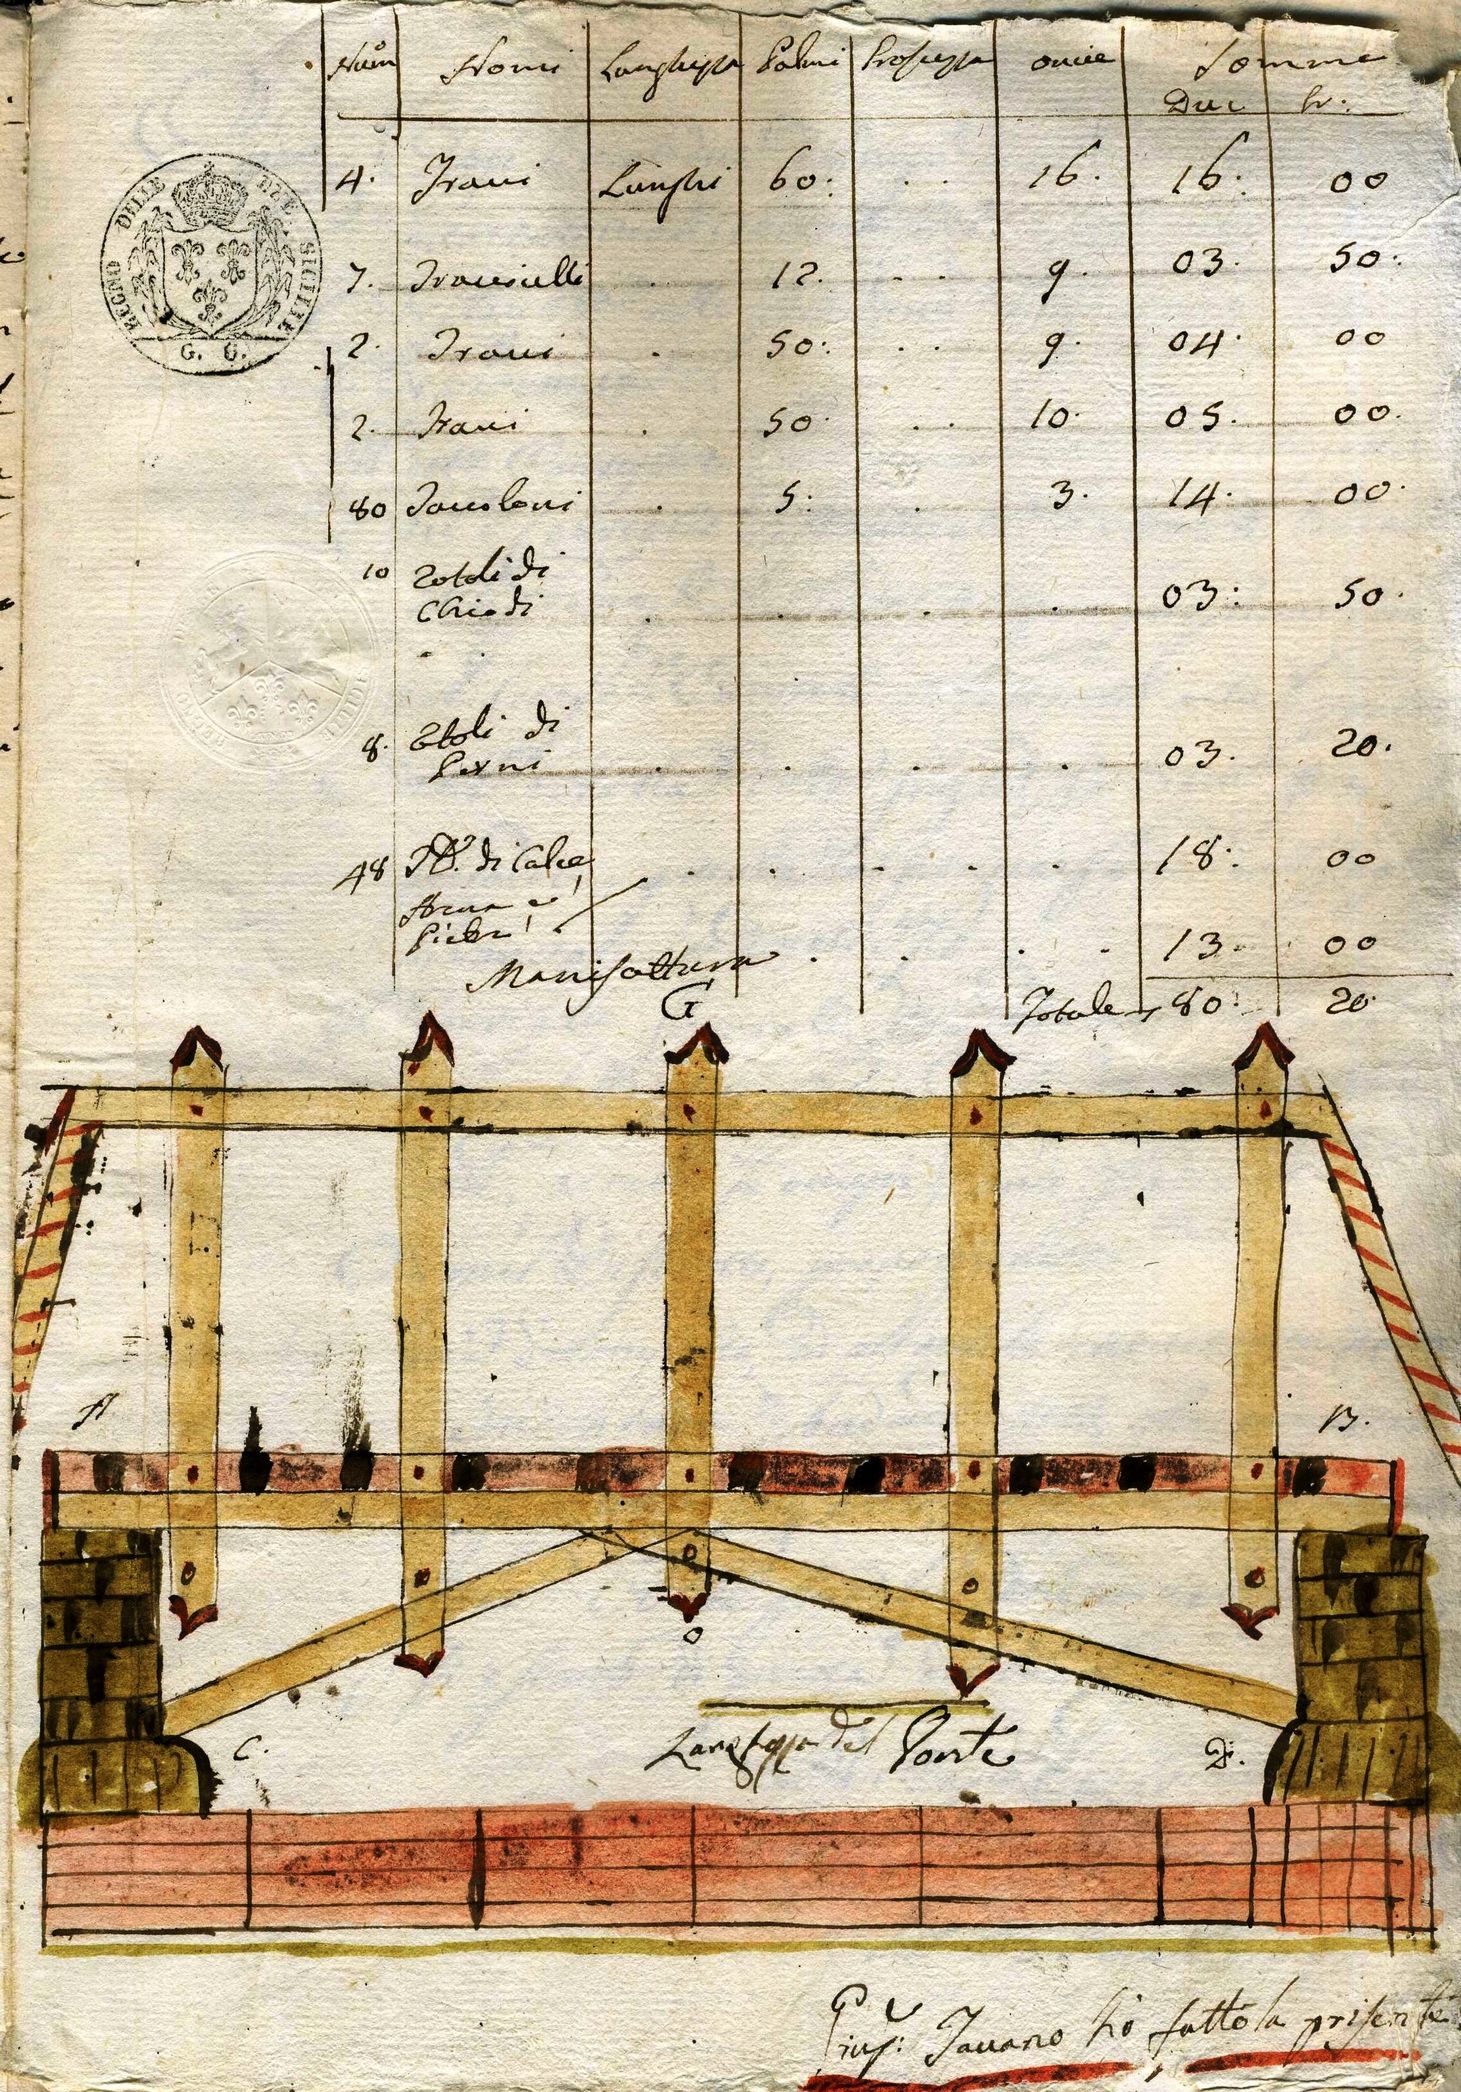 Num Nomi Lunghezza Palmi Grossezza oncie Somme
Duc Gr:
4. Travi Lunghi 60: . . 16. 16: 00
7. Travicelli . 12. . . 9. 03. 50.
2. Travi . 50. . . 9. 04. 00
2. Travi . 50. . . 10. 05. 00.
80 Tavoloni . 5: . 3. 14. 00.
10 Rotoli di
Chiodi . . . . 03: 50.
8. Rotoli di
Perni . . . . 03. 20.
48 di Calce . . . . . 18: 00
Arena e
Pietre 13. 00
Manifattura . . . .
Totale 80: 20.
REGNO DELLE DUE SICILIE
G. G.
G
A
B.
o
C.
D.
Larghezza del Ponte
Gius: Tavano hò fatto la prisente